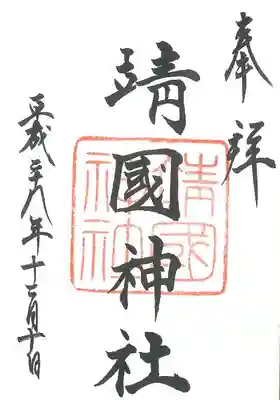 奉拝
靖國神社
靖國神社
平成二十八年十二月十日